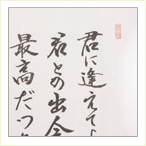 君に逢えてよ
君との出会
最高だった